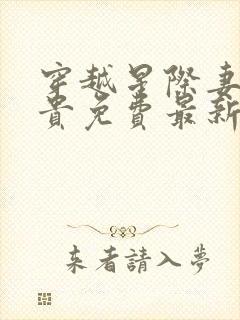 穿越星際妻
貴免費最新
来者請入夢